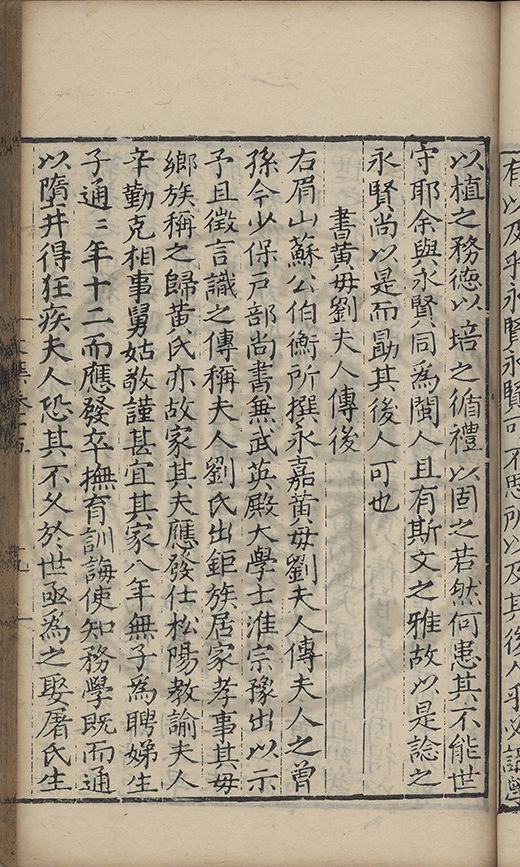 有以及乎永賢永賢可不思所以及其後人乎必詩學
以植之務德以培之循禮以固之若然何患其不能世
守耶余與永賢同為閩人且有斯文之雅故以是諗之
永賢尚以是而勗其後人可也
書黃母劉夫人傳後
右眉山蘇公伯衡所撰永嘉黃母劉夫人傳夫人之曾
孫今少保戶部尚書兼武英殿大學士淮宗豫出以示
予且徵言識之傳稱夫人劉氏出鉅族居家孝事其母
鄉族稱之歸黃氏亦故家其夫應發仕松陽教諭夫人
辛勤克相事舅姑敬謹甚宜其家八年無子為聘娣生
子通三年十二而應發卒撫育訓誨使知務學既而通
以墮井得狂疾夫人恐其不久於世亟為之娶屠氏生